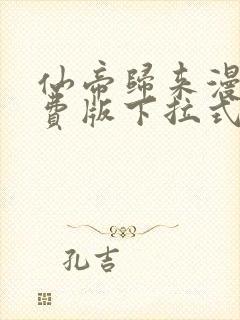 仙帝歸来漫
費版下拉式
孔吉